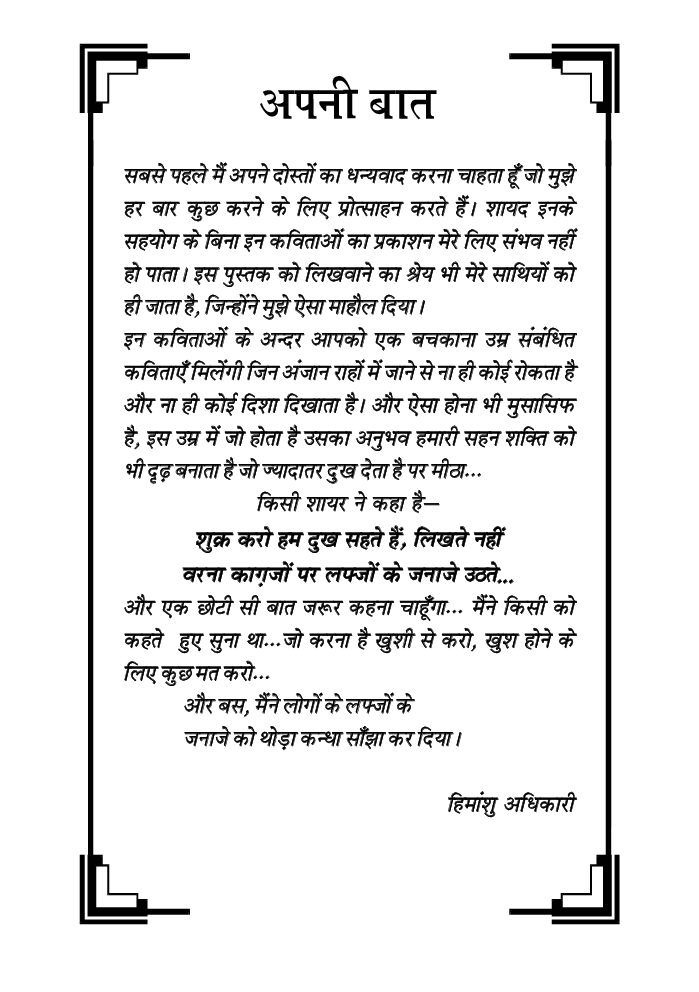 अपनी बात
सबसे पहले मैं अपने दोस्तों का धन्यवाद करना चाहता हूँ जो मुझे
हर बार कुछ करने के लिए प्रोत्साहन करते हैं। शायद इनके
सहयोग के बिना इन कविताओं का प्रकाशन मेरे लिए संभव नहीं
हो पाता। इस पुस्तक को लिखवाने का श्रेय भी मेरे साथियों को
ही जाता है, जिन्होंने मुझे ऐसा माहौल दिया।
इन कविताओं के अन्दर आपको एक बचकाना उम्र संबंधित
कविताएँ मिलेंगी जिन अंजान राहों में जाने से ना ही कोई रोकता है
और ना ही कोई दिशा दिखाता है। और ऐसा होना भी मुसासिफ
है, इस उम्र में जो होता है उसका अनुभव हमारी सहन शक्ति को
भी दृढ़ बनाता है जो ज्यादातर दुख देता है पर मीठा...
किसी शायर ने कहा है—
शुक्र करो हम दुख सहते हैं, लिखते नहीं
वरना काग़जों पर लफ्जों के जनाजे उठते...
और एक छोटी सी बात जरूर कहना चाहूँगा... मैंने किसी को
कहते हुए सुना था...जो करना है खुशी से करो, खुश होने के
लिए कुछ मत करो...
और बस, मैंने लोगों के लफ्जों के
जनाजे को थोड़ा कन्धा साँझा कर दिया।
हिमांशु अधिकारी